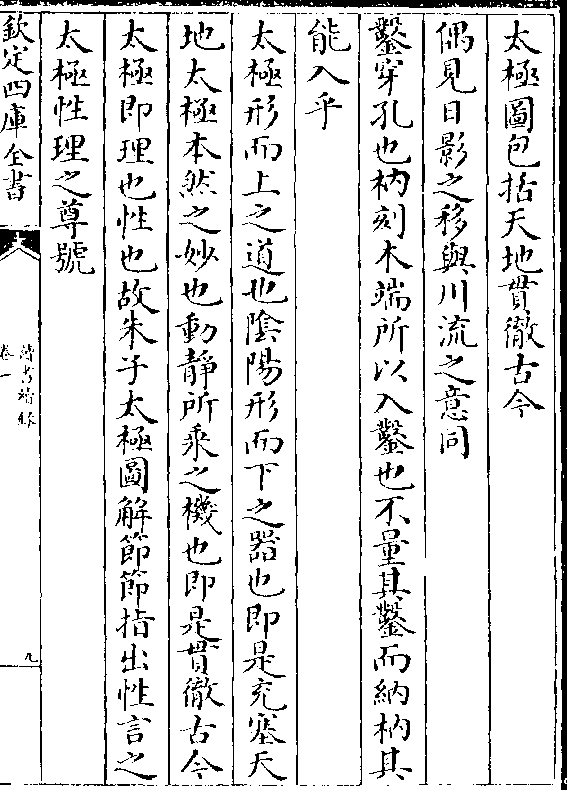 太極圖包括天地貫徹古今
偶見日影之移與川流之意同
鑿穿孔也枘刻木端所以入鑿也不量其鑿而納枘其
能入乎
太極形而上之道也陰陽形而下之器也即是充塞天
地太極本然之妙也動靜所乘之機也即是貫徹古今
太極即理也性也故朱子太極圖解節節指出性言之
太極性理之尊號
欽定四庫全書
讀書續錄
卷一
九